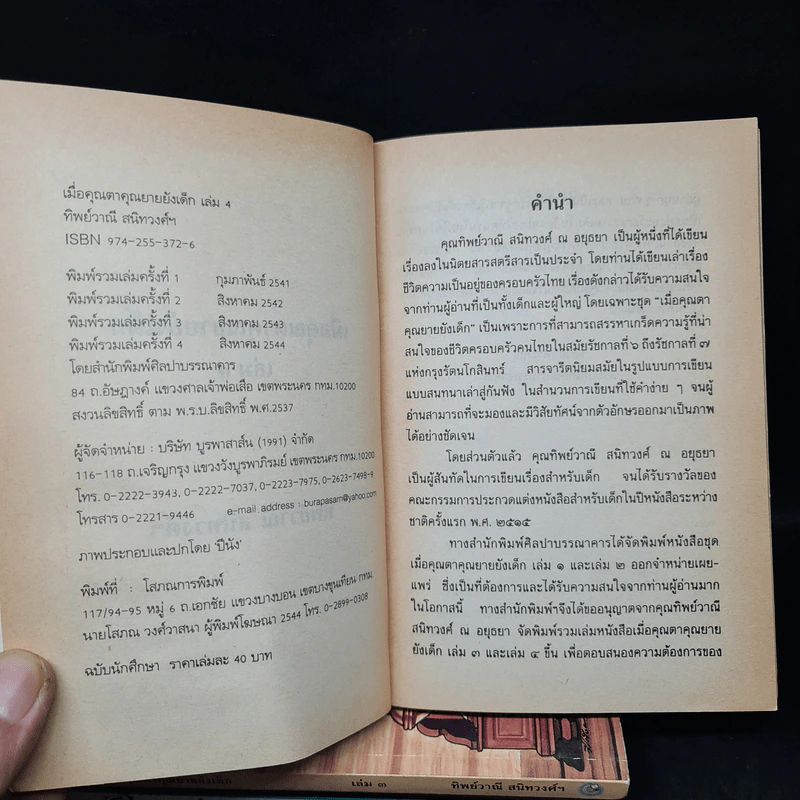 เมื่อคุณตาคุณยายยังเด็ก เล่ม 4
ทิพย์วาณี สนิทวงศ์ฯ
ISBN 974-255-372-6
พิมพ์รวมเล่มครั้งที่ 1 กุมภาพันธ์ 2541
พิมพ์รวมเล่มครั้งที่ 2 สิงหาคม 2542
พิมพ์รวมเล่มครั้งที่ 3 สิงหาคม 2543
พิมพ์รวมเล่มครั้งที่ 4 สิงหาคม 2544
โดยสำนักพิมพ์ศิลปาบรรณาคาร
84 ถ.อัษฎางค์ แขวงศาลเจ้าพ่อเสือ เขตพระนคร กทม.10200
สงวนลิขสิทธิ์ ตาม พ.ร.บ.ลิขสิทธิ์ พ.ศ.2537
ผู้จัดจำหน่าย : บริษัท บูรพาสาส์น (1991) จำกัด
116-118 ถ.เจริญกรุง แขวงวังบูรพาภิรมย์ เขตพระนคร กทม.10200
โทร. 0-2222-3943, 0-2222-7037, 0-2223-7975, 0-2623-7498-9
โทรสาร 0-2221-9446 e-mail address : burapasam@yahoo.com
ภาพประกอบและปกโดย 'ปีนัง'
พิมพ์ที่ : โสภณการพิมพ์
117/94-95 หมู่ 6 ถ.เอกชัย แขวงบางบอน เขตบางขุนเทียน กทม.
นายโสภณ วงศ์วาสนา ผู้พิมพ์โฆษณา 2544 โทร. 0-2899-0308
ฉบับนักศึกษา ราคาเล่มละ 40 บาท
คำนำ
คุณทิพย์วาณี สนิทวงศ์ ณ อยุธยา เป็นผู้หนึ่งที่ได้เขียน
เรื่องลงในนิตยสารสตรีสารเป็นประจำ โดยท่านได้เขียนเล่าเรื่อง
ชีวิตความเป็นอยู่ของครอบครัวไทย เรื่องดังกล่าวได้รับความสนใจ
จากท่านผู้อ่านที่เป็นทั้งเด็กและผู้ใหญ่ โดยเฉพาะชุด "เมื่อคุณตา
คุณยายยังเด็ก" เป็นเพราะการที่สามารถสรรหาเกร็ดความรู้ที่น่า
สนใจของชีวิตครอบครัวคนไทยในสมัยรัชกาลที่ ๖ ถึงรัชกาลที่ ๗
แห่งกรุงรัตนโกสินทร์ สารจารีตนิยมสมัยในรูปแบบการเขียน
แบบสนทนาเล่าสู่กันฟัง ในสำนวนการเขียนที่ใช้คำง่าย ๆ จนผู้
อ่านสามารถที่จะมองและมีวิสัยทัศน์จากตัวอักษรออกมาเป็นภาพ
ได้อย่างชัดเจน
โดยส่วนตัวแล้ว คุณทิพย์วาณี สนิทวงศ์ ณ อยุธยา
เป็นผู้สันทัดในการเขียนเรื่องสำหรับเด็ก จนได้รับรางวัลของ
คณะกรรมการประกวดแต่งหนังสือสำหรับเด็กในปีหนังสือระหว่าง
ชาติครั้งแรก พ.ศ. ๒๕๑๕
ทางสำนักพิมพ์ศิลปาบรรณาคารได้จัดพิมพ์หนังสือชุด
เมื่อคุณตาคุณยายยังเด็ก เล่ม ๑ และเล่ม ๒ ออกจำหน่ายเผย-
แพร่ ซึ่งเป็นที่ต้องการและได้รับความสนใจจากท่านผู้อ่านมาก
ในโอกาสนี้ ทางสำนักพิมพ์ฯจึงได้ขออนุญาตจากคุณทิพย์วาณี
สนิทวงศ์ ณ อยุธยา จัดพิมพ์รวมเล่มหนังสือเมื่อคุณตาคุณยาย
ยังเด็ก เล่ม ๓ และเล่ม ๔ ขึ้น เพื่อตอบสนองความต้องการของ
เล่ม ๓ ทิพย์วาณี สนิทวงศ์ฯ